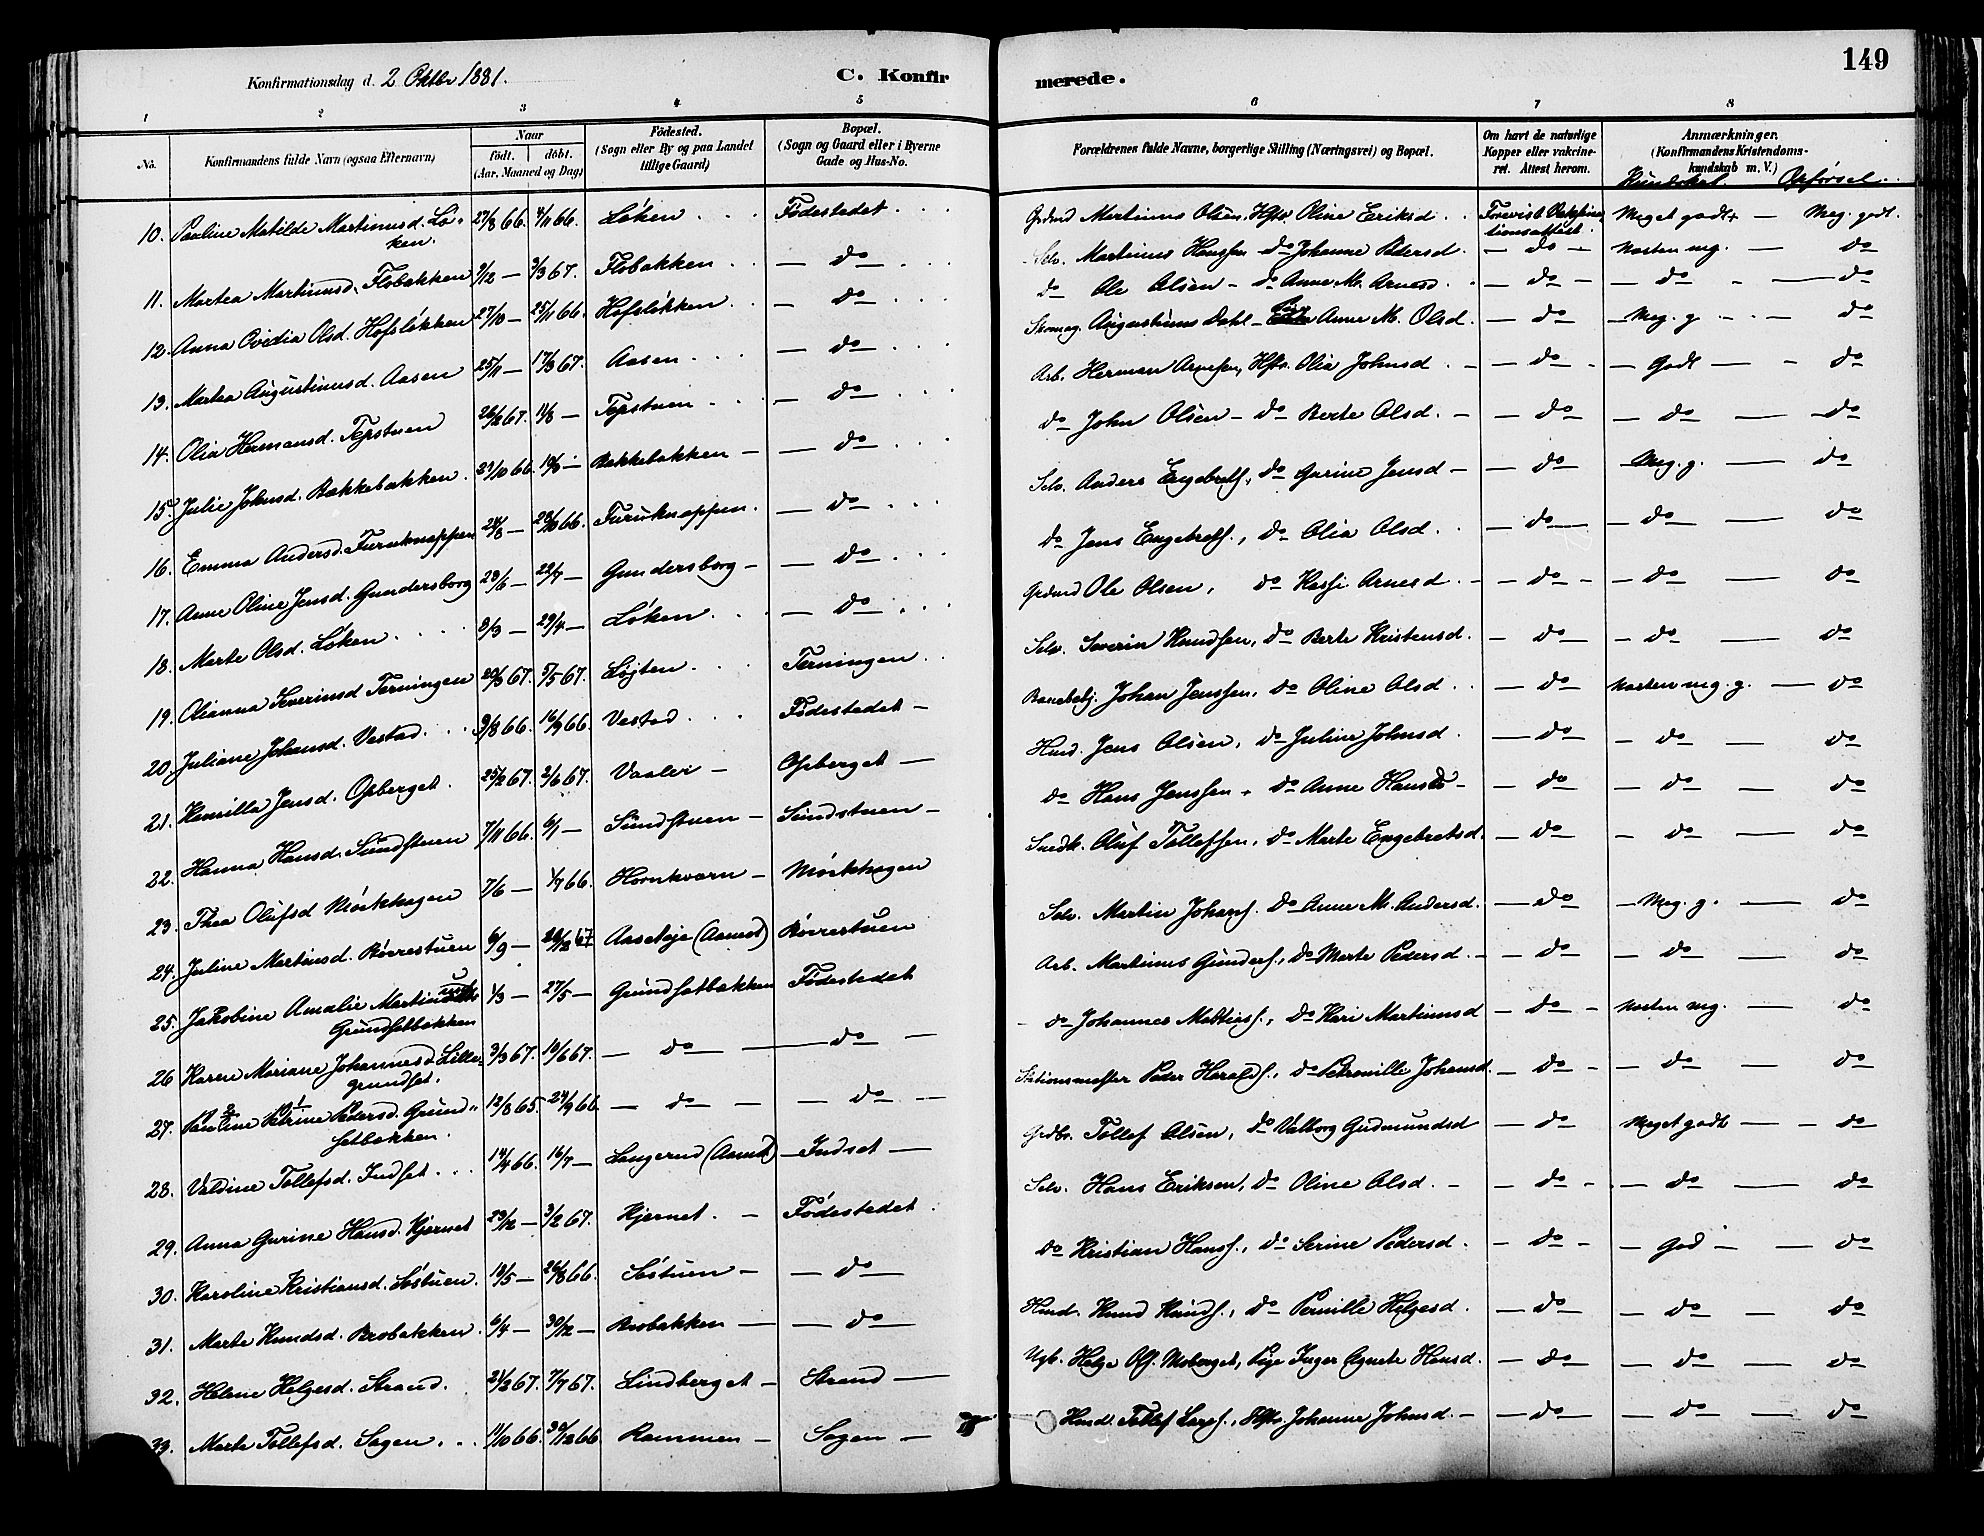 149
Konfirmationsdag d. 2 Oktbr 1881.
C. Konfirmerede.
1 2 3 4 5 6 7 8
No. Konfirmandens fulde Navn (ogsaa Efternavn). Naar født. døbt. (Aar, Maaned og Dag) Fødested. (Sogn eller By og paa Landet tillige Gaard) Bopæl. (Sogn og Gaard eller i Byerne Gade og Hus-No. Forældrenes fulde Navne, borgerlige Stilling (Næringsvei) og Bopæl. Om havt de naturlige Kopper eller vakcineret. Attest herom. Anmærkninger. (Konfirmandens Kristendomskundskab m. V.)
Kundskab. Opførsel.
10. Pauline Matilde Martinusd. Løken. 27/8 66. 4/11 66. Løken Fødestedet Grdmd Martinus Olsen. Hstr. Oline Eriksd. Forevist Vakcinationsattest. Meget godt — Meg. godt.
11. Martea Martinusd. Flobakken 9/12 — 3/3 67. Flobakken — do — Selv. Martinus Hanssen — do Johanne Pedersd. — do — Næsten mg. — do
12. Anna Ovidia Olsd. Hofsløkken 27/10 — 25/11 66. Hofsløkken — do — do Ole Olsen — do Anne M. Arnesd. — do — do — do
13. Martea Augustinusd. Aasen 25/11 — 17/3 67. Aasen — do — Skomag. Augustinus Dahl — Anne M. Olsd. — do — Meg. g. — do
14. Olia Hermansd. Tepstuen 26/2 67. 11/8 — Tepstuen — do — Arb. Herman Arnesen, Hstr. Olia Johnsd. — do — Godt — do
15. Julie Johnsd. Bakkebakken. 29/10 66. — Bakkebakken — do — do John Olsen — do Berte Olsd. — do — do — do
16. Emma Andersd. Furuknappen 24/8 — 28/10 66. Furuknappen. — do — Selv. Anders Engebrets., do Gurine Jensd — do — Meg. g. — do
17. Anne Oline Jensd. Gundersborg 23/6 — 22/7 — Gundersborg — do — do Jens Engebrets., do Olia Olsd. — do — do — do
18. Marte Olsd. Løken 8/3 — 29/4 — Løken — do — Grdmd Ole Olsen, do Kasji Arnesd. — do — do — do
19. Olianna Severinsd Terningen 20/3 67. 5/5 67. Løjten Terningen Selv. Severin Knudsen, do Berte Kristensd. — do — do — do
20. Juliane Johansd. Vestad. 9/8 66. 16/9 66. Vestad Fødestedet — Banebetj. Johan Jenssen, do Oline Olsd. — do — Næsten meg. g. — do
21. Kamilla Jensd. Opberget. 25/2 67. 2/6 67. Vaaler — Opberget — Husd. Jens Olsen, do Juline Johnsd. — do — do — do
22. Hanna Hansd. Sundstuen 7/11 66. 6/1 — Sundstuen — Sundstuen — do Hans Jenssen, do Anne Hansd — do — do — do
23. Thea Olufsd Mörkhagen 7/6 — 1/7 66. Hornkværn — Mörkhagen Snedk. Oluf Tollefsen, do Marte Engebretsd. — do — do — do
24. Juline Martinsd. Börrestuen 6/9 — 67 Aaseteje (Aamot) Börrestuen Selv. Martin Johans. do Anne M. Andersd. — do — Meg. g. — do
25. Jakobine Amalie Martinusd. Grundsetbakken 1/3 — 27/5 — Grundsetbakken Fødestedet Arb. Martinus Gunders., do Marte Pedersd. — do — do — do
26 Karen Mariane Johannesd. Lillegrundset. 3/3 67. 10/6 67. — do — do — do Johannes Mathias., do Kari Martinusd — do — Næsten mg. — do
27. Pauline Petrine Pedersd. Grundsetbakken. 12/8 65. 24/9 66. — do — do — Stationsmester Peder Haralds., do Petronille Johansd. — do — do — do
28. Valdine Tollefsd. Indset. 14/4 66. 16/7 — Langerud (Aamot) — Indset — Grdbr. Tollef Olsen, do Valborg Gudmundsd — do — Meget godt — do
29. Anna Gurine Hansd. Kjernet 29/12 — 3/2 67. Kjernet. — Fødestedet. Selv. Hans Eriksen, do Oline Olsd. — do — do — do
30. Karoline Kristiansd. Söstuen. 10/5 — 26/8 66. Söstuen — do — do Kristian Hans., do Serine Pedersd. — do — God — do
31. Marte Knudsd. Brobakken. 6/4 — 30/12 — Brobakken — do — Husd. Knud Knuds., do Pernille Helgesd. — do — do — do
32. Helene Helgesd. Strand. 21/3 67. 7/7 67. Lindberget — Strand — Ugb. Helge Ols. Moberget, Pige Inger Agnete Hansd. — do — do — do
33. Marte Tollefsd. Sagen. 11/10 66. 30/12 66 Rammen — Sagen — Husd. Tollef Lars., Hstr. Johanne Johnsd. — do — do — do